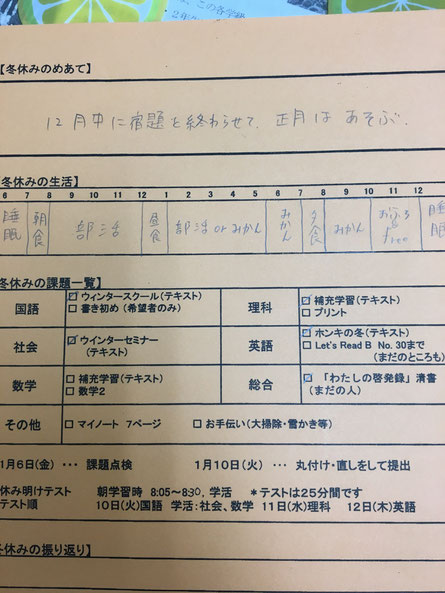 この各学級
【冬休みのめあて】
12月中に宿題を終わらせて、正月はあそぶ.
冬休みの生活】
6 7 8 9 10 11 12 1 2 3 4 5 6 7 8 9 10 11 12
睡眠 朝食 部活 昼食 部活orみかん みかん 夕食 みかん おふろ&free 睡眠
冬休みの課題一覧】
国語 ☑ウィンタースクール(テキスト) 理科 ☑補充学習(テキスト)
□書き初め(希望者のみ) □プリント
社会 ☑ウインターセミナー 英語 ☑ホンキの冬(テキスト)
(テキスト) □Let's Read B No. 30まで
(まだのところも)
数学 □補充学習(テキスト) 総合 ☑「わたしの啓発録」清書
□数学2 (まだの人)
その他 □マイノート 7ページ □お手伝い(大掃除・雪かき等)
1月6日(金) ・・・ 課題点検 1月10日(火) ・・・ 丸付け・直しをして提出
休み明けテスト 朝学習時 8:05~8:30, 学活 *テストは25分間です
テスト順 10日(火)国語 学活:社会、数学 11日(水)理科 12日(木)英語
冬休みの振り返り】